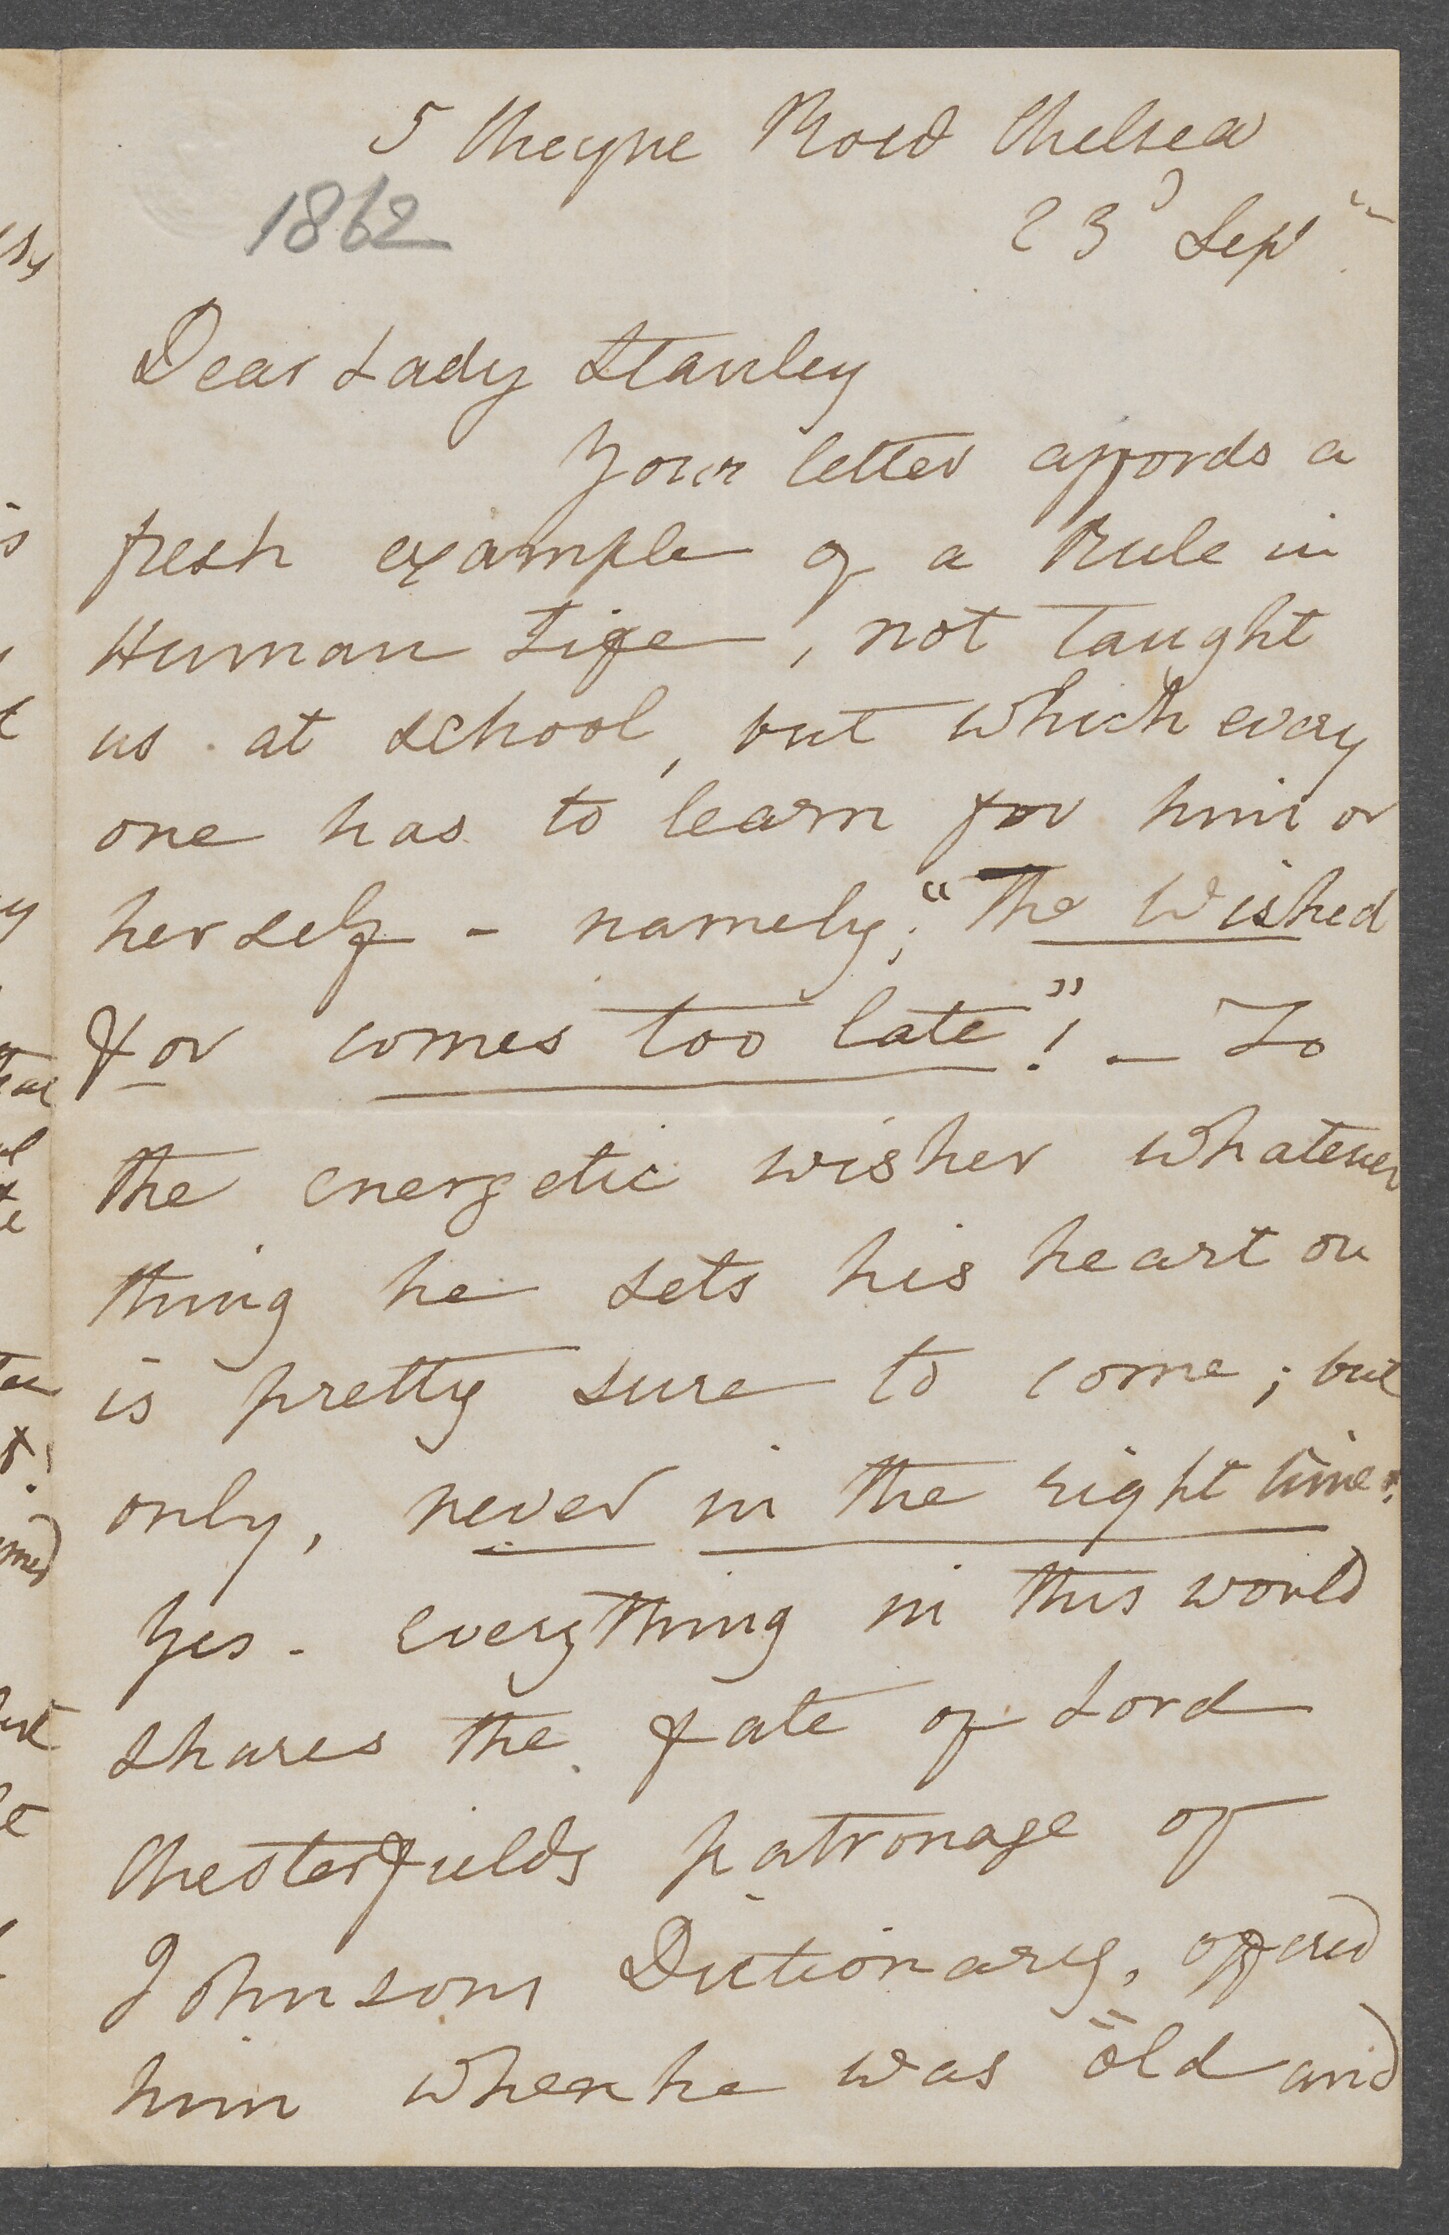 5 Cheyne Row Chelsea
1862
23d Sepr
Dear Lady Stanley
Your letter affords a
fresh example of a Rule in
Human Life, not taught
us at school, but which every
one has to learn for him or
herself - namely; "The Wished
for comes too late"! - To
the energetic wisher whatever
thing he sets his heart on
is pretty sure to come; but
only, never in the right time.
Yes - everything in this world
shares the fate of Lord
Chesterfields patronage of
Johnsons Dictionary, offered
him when he was "old and